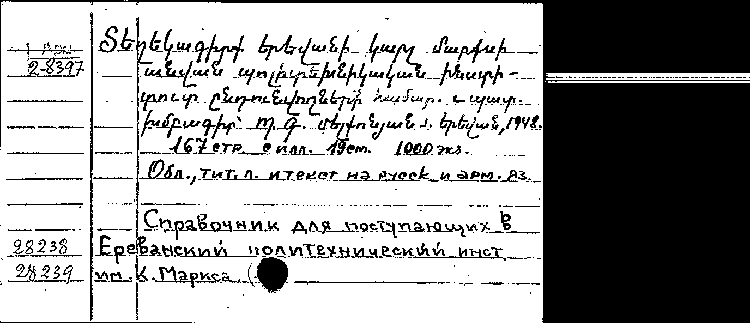 Տեղեկագիրք Երևանի Կարլ Մարքսի
2-8397 անվան պոլիտեխնիկական ինստի-
տուտ ընդունվողների համար. պատ.
խմբագիր՝ Երևան, 1948.
167 стр. с илл. 19 см. 1000 экз.
Обл., тит. л. и текст на русск. и арм. яз.
Справочник для поступающих в
28238 Ереванский политехнический инст.
28239 им. К. Маркса